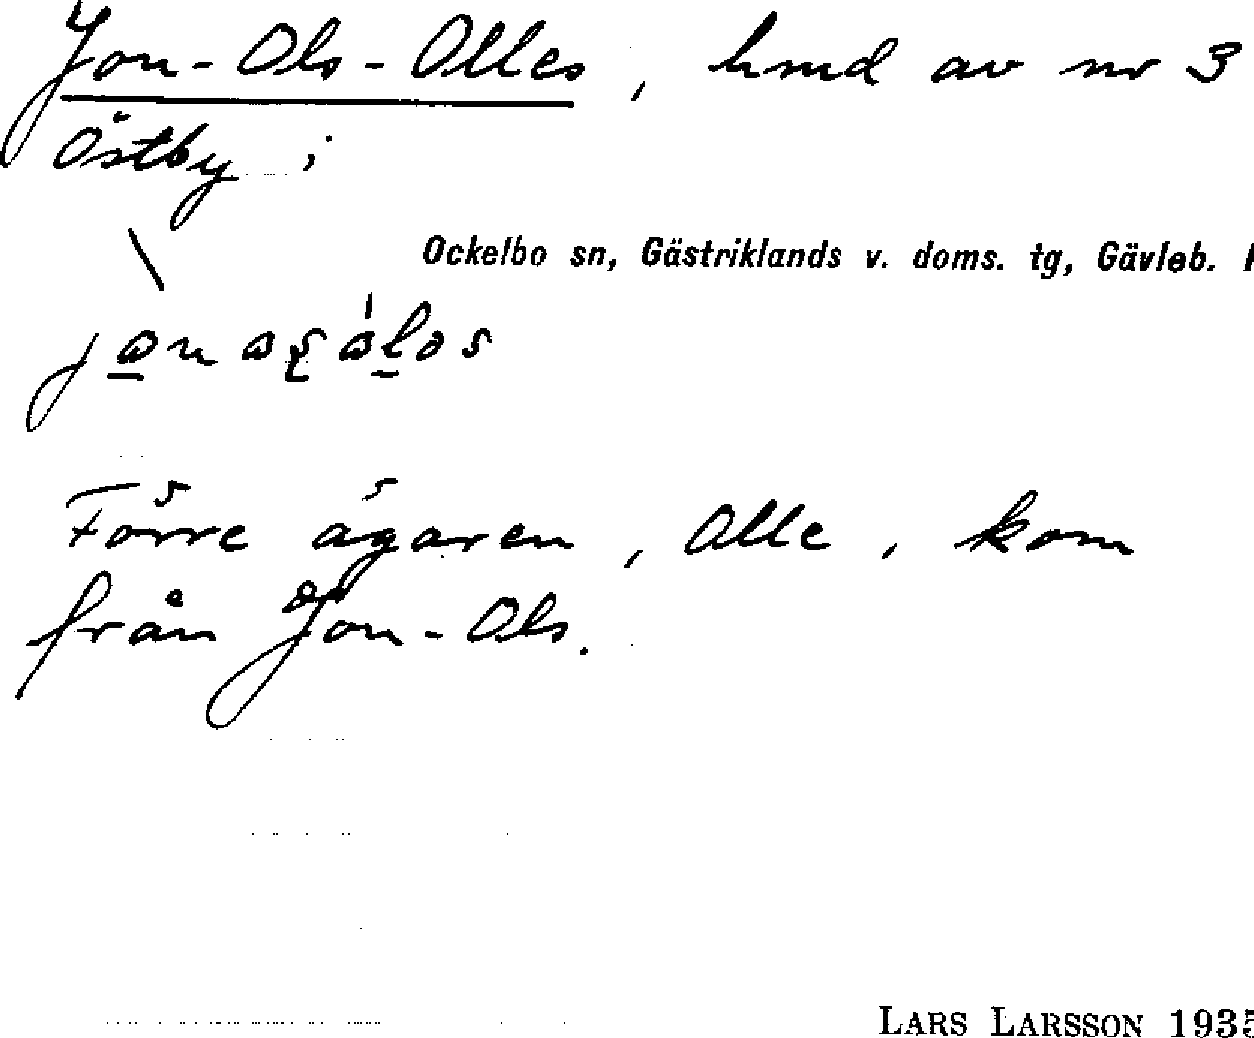 Jon-Ols-Olles, hmd av nr 3
Östby i
Ockelbo sn, Gästriklands v. doms. tg, Gävleb.
Förre ägaren, Olle, kom
från Jon-Ols.
LARS LARSSON 1935